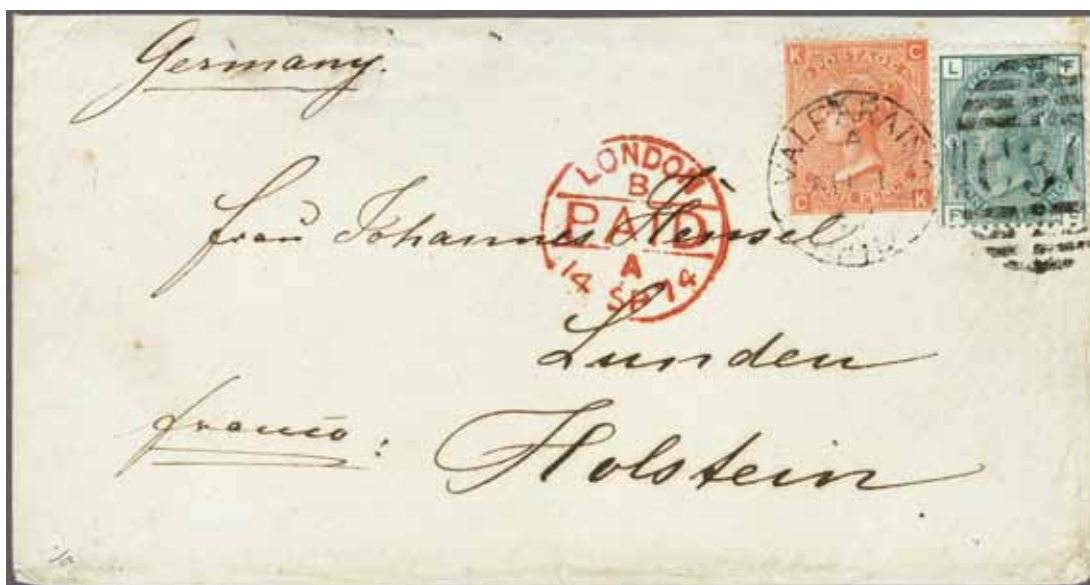 Germany.
K C
POSTAGE
C K
L F
F
VALPARAISO
A
C30
LONDON
B
PAID
A
14 SP 74
frau Johannes Hensel
Lunden
franco:
Holstein